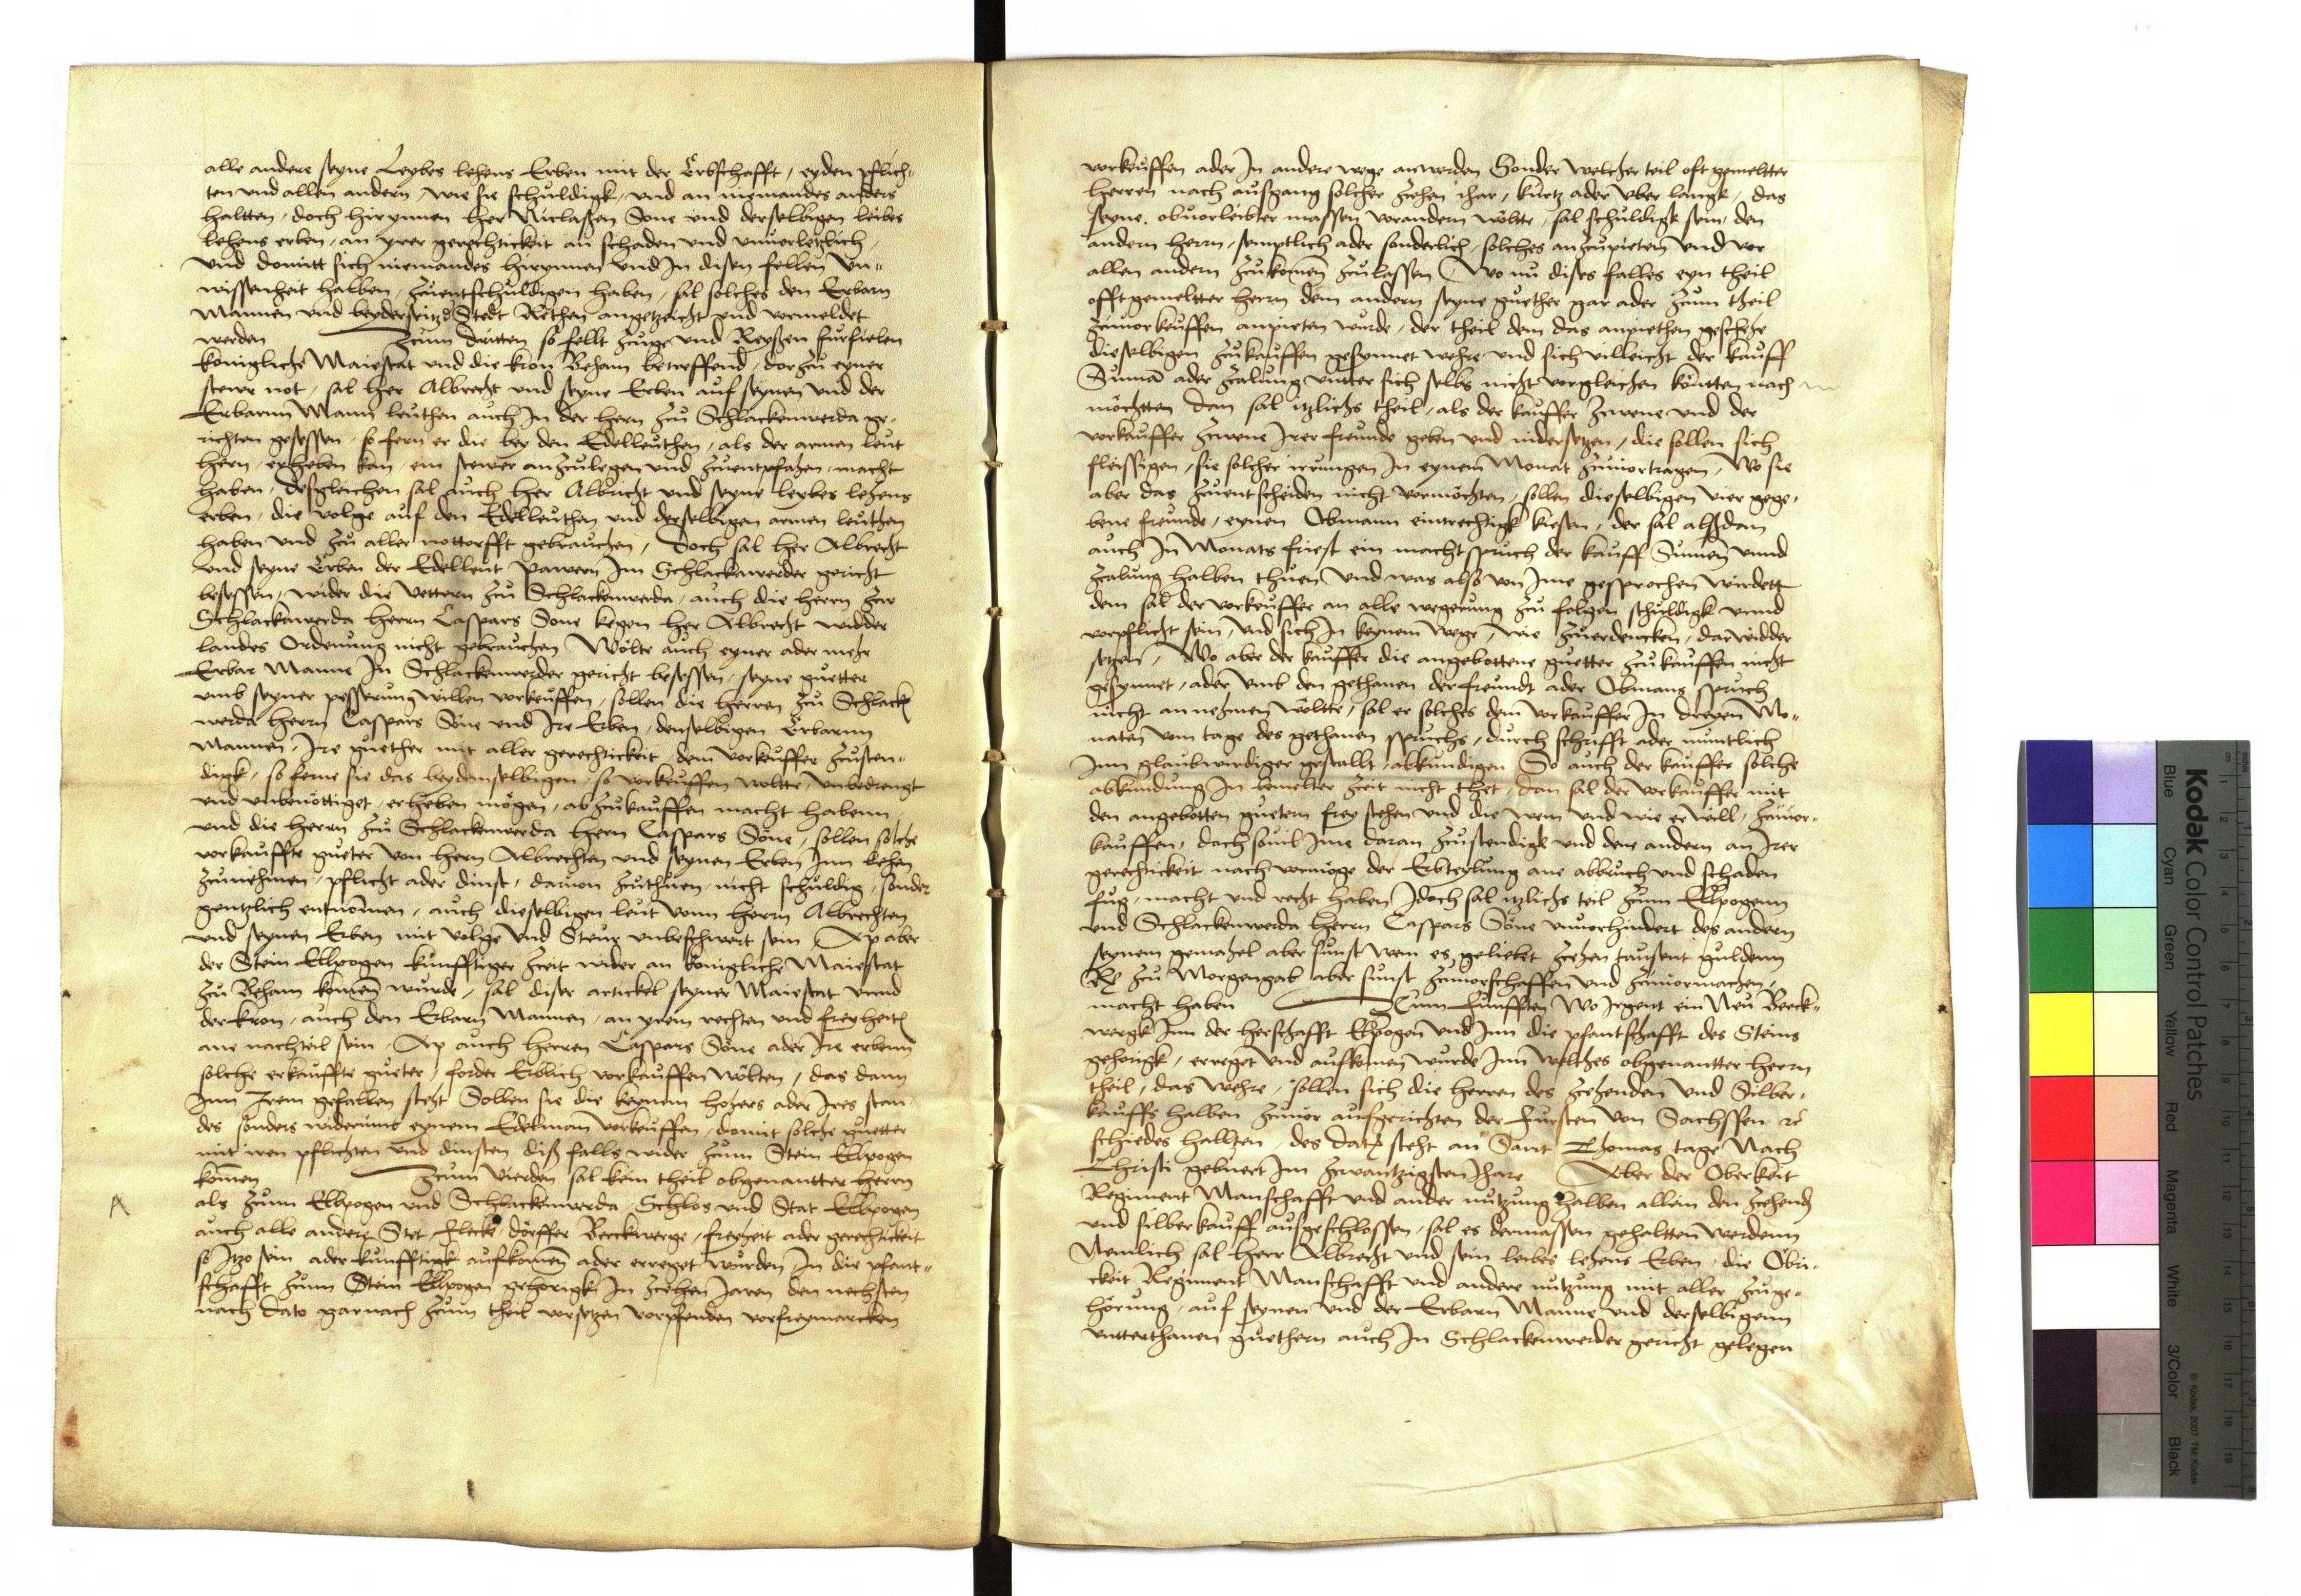 alle andere seyne Leybes lehens Erben mit der Erbschafft, eyden pflich-
ten vnd allen andern, wie sie schuldigk, vnd an niemandes anders
haltten, doch hirynnen her Niclaßen Sone vnd derselbigen leibes
lehens erben, an yrer gerechtickeit an schaden vnd vnuerletzlich,
vnd domitt sich niemandes hirynnen vnd In disen fellen Vn-
wissenheit halben, zuentschuldigen haben, sal solches den Erbarn
Mannen vnd beyderseitz Stedt Rethen angetzeicht vnd vermeldet
werden Zcum dritten so fellt zuge vnd Reyßen furfielen
konigliche Maiestat vnd die kron Beham betreffend, dorzu eyner
stewr not, sal her Albrecht vnd seyne Erben auf seynen vnd der
Erbarnn Mann leuthen auch In der hern zu Schlackenwerda ge-
richten gesessen, so fern er die bey den Edelleuthen, als der armen leut
hern, erheben kan, ein stewer anzculegen vnd zuentpfahen, macht
haben, desgleichen sal auch her Albrecht vnd seyne leybes lehens
erben, die volge auf den Edelleuthen vnd derselbigen armen leuthen
haben vnd zu aller nottorfft gebrauchen, Doch sal her Albrecht
vnd seyne Erben der Edelleut Pawern Im Schlackawerder gericht
besessen, wider die Vettern zu Schlackenwerda, auch die herrn zw
Schlackawerda herrn Caspars Sone kegen her Albrecht widder
landes Ordenung nicht gebrauchen Wolte auch eyner ader mehr
Erbar Manne In Schlackenwerder gericht besessen, seyne guetter
vmb seyner pesserung willen vorkeuffen, sollen die herren zu Schlacken
werda herrn Caspars Söne vnd Ire Erben, denselbigen Erbarnn
Mannen, Ire guether mit aller gerechtickeit dem vorkeuffer zusten-
digk, so ferne sie das bey demselbigen, so vorkeuffen woltte, vnbedrengt
vnd vnbenöttiget, erheben mögen, abzukauffen macht habenn
vnd die herrn zu Schlackenwerda hern Caspars Söne, sollen solche
vorkauffte gueter von hern Albrechten vnd seynen Erben Inn lehen
zunehmen, pflicht ader dinst, dauon zuthuen, nicht schuldig, sonder
gentzlich entnommen, auch dieselbigen leut vonn herrn Albrechten
vnd seynen Erben mit volge vnd Steur vnbeschwert sein, Ap aber
der Stein Elbogen kunfftiger zeit wider an konigliche Maiestat
zu Beham komen wurde, sal diser artickel seyner Maiestat vnnd
der kron, auch den Erbarn Mannen, an yren rechten vnd freyheiten
ane nachteil sein, Ap auch herren Caspars Söne ader Ire erbenn
solche erkauffte gueter, forder Erblich vorkauffen wölten, das dann
Inn Irem gefallen steht Sollen sie die keynem hohers ader Ires stan-
des sonders widerumb eynem Edelman vorkeuffen, domit solche guetter
mit iren pflichten vnd dinsten diß falls wider zum Stein Elbogen
komen Zcum Vierden sal kein theil obgenantter herrn
als zum Elbogen vnd Schlackenwerda, Schlos vnd Stat Elbogen
auch alle andere Stet Fleck, dörffer Berckwerge, freyheit ader gerechtickeit
so Itzo sein ader kunfftigk aufkomen ader erreget wurden In die pfant-
schafft zum Stein Elbogen gehorigk In zehen Jaren den nechsten
nach dato gar nach zum theil vorsetzen vorpfenden vorfreymarcken
A
vorkeuffen ader In andere wege anwerden Sonder welcher teil oft gemeltter
herren nach ausgang solcher zehen ihar, kurtz ader vber langk, das
seyne, obuorleibter massen vorandern wöltte, sal schuldigk sein, den
andern herrn, semptlich ader sonderlich, solches anzupieten vnd vor
allen andern zukomen zulassen, Wo nu dises falles eyn theil
offtgemeltter herrn dem andern seyne guether gar ader zum theil
zuuorkeuffen anpieten wurde, der theil dem das anpiethen geschehe
dieselbigen zukauffen gesynnet wehre vnd sich villeicht der kauff
Summa ader zcalung vntter sich selbs nicht vorgleichen köntten nach
möchtten dan sal itzlichs theil, als der kauffer zwene vnd der
vorkauffer zwene Irer freunde geben vnd nidersetzen, die sollen sich
fleissigen, sie solcher irrungen In eynem Monat zuuortragen, Wo sie
aber das zuentscheiden nicht vormöchten, sollen dieselbigen vier gege-
bene freunde, eynen Obmann eintrechtigk kiesen, der sal alßdan
auch In Monats friest ein machtspruch der kauff Summen vnnd
zcalung halben thuen, vnd was also von Ime gesprochen wirdett
dem sal der vorkeuffer an alle wegerung zu folgen schuldigk vnnd
vorpflicht sein, vnd sich In keynem wege, wie zuerdencken, darwidder
setzen, Wo aber der kauffer die angebottene guetter zukauffen nicht
gesynnet, ader vmb den gethanen der freundt ader Obmans spruch
nicht annehmen wöltte, sal er solches dem vorkauffer In dreyen Mo-
naten vom tage des gethanen spruchs, durch schrifft ader muntlich
Inn glaubwirdiger gestallt, abkundigen So auch der kauffer solche
abkundung In bemelter zeit nicht thet, dan sal der vorkauffer mit
den angebotten guetern frey stehen vnd die wem vnd wie er will, zuuor-
kauffen, doch souil Ime daran zustendigk vnd dem andern an Irer
gerechtickeit nach vermöge der Erbteylung ane abbruch vnd schaden
fug, macht vnd recht haben Idoch sal itzlichs teil zum Elbogenn
vnd Schlackenwerda herrn Caspars Söne vnuorhindert des andern
seynem gemahel aber sunst wem es geliebet zehen tausent guldenn
Rh zu Morgengab aber sunst zuuorschaffen vnd zuuormachen,
macht haben Zcum Funfften Wo Irgent ein New Berck-
wergk Inn der herschafft Elbogen vnd Inn die pfantschafft des Steins
gehorigk, erreget vnd aufkomen wurde Inn welches obgenantter herrn
theil, das wehre, sollen sich die herren des zehenden vnd Silber-
kauffs halben zuuor aufgerichten der Fursten von Sachssen re
schiedes hallten, des datum steht an Sant Thomas tage Nach
Christi geburt Im zwantzigsten Ihare Aber der Oberkeit
Regiment Manschafft vnd ander nutzung halben allein den zehend
vnd silberkauff ausgeschlossen, sal es dermassen gehaltten werdenn
Nemlich sal Herr Albrecht vnd sein leibes lehens Erben, die Obir-
ckeit Regiment Manschafft vnd andere nutzung mit aller zuge-
hörung, auf seynen vnd der Erbarn Manne vnd derselbigenn
vntterthanen guethern auch In Schlackenwerder gericht gelegen
Kodak Color Control Patches
Blue Cyan Green Yellow Red Magenta White 3/Color Black
© Kodak, 2007 TM: Kodak